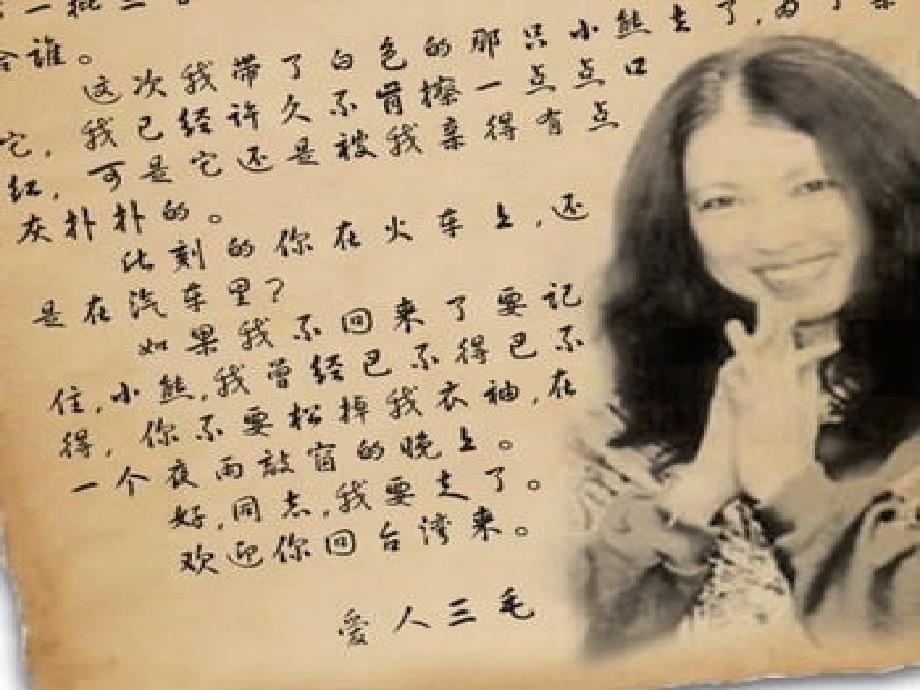 一批
谁。
这次我带了白色的那只小熊去了，为了亲
它，我已经许久不肯擦一点点口
红，可是它还是被我亲得有点
灰扑扑的。
此刻的你在火车上，还
是在汽车里？
如果我不回来了要记
住，小熊，我曾经巴不得巴不
得，你不要松掉我衣袖，在
一个夜雨敲窗的晚上。
好，同志，我要走了。
欢迎你回台湾来。
爱人三毛